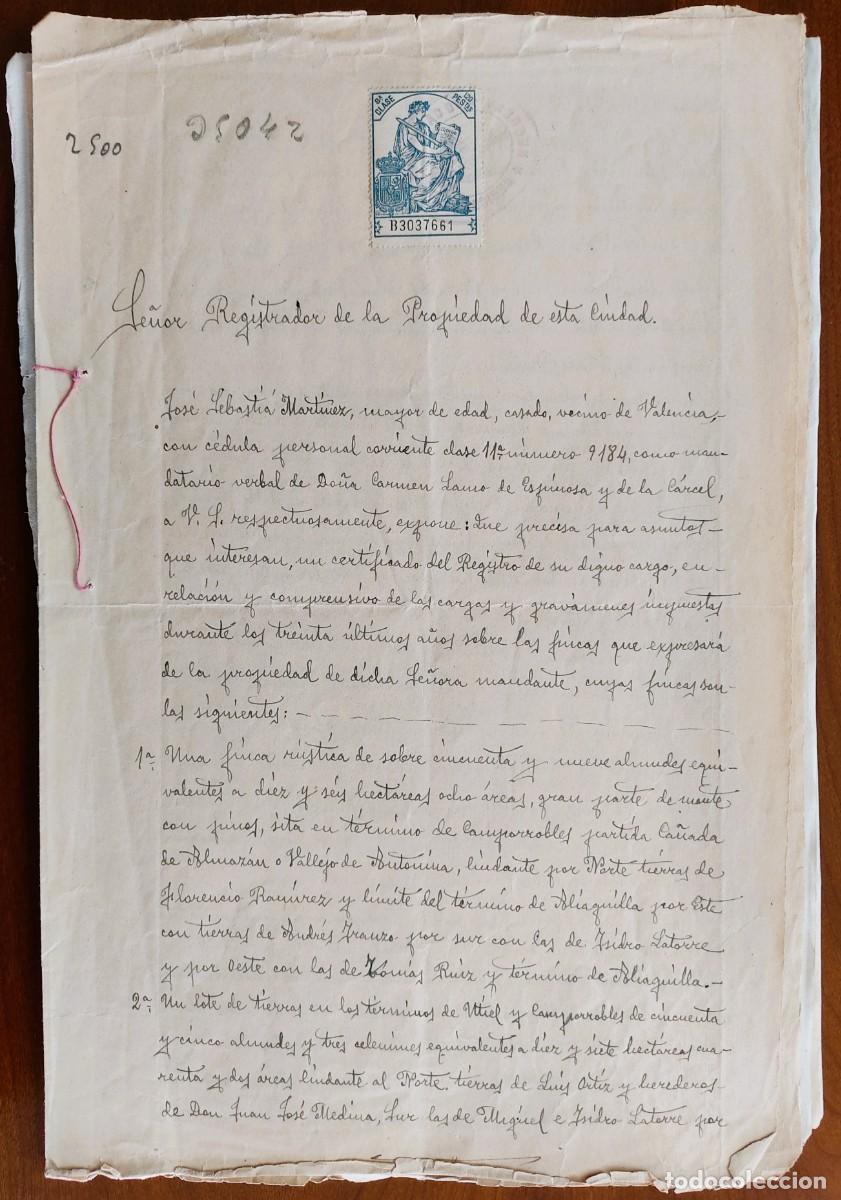 2500 25042
8ª CLASE
B3037661
Señor Registrador de la Propiedad de esta Ciudad.
José Sebastiá Martínez, mayor de edad, casado, vecino de Valencia,-
con cédula personal corriente clase 11ª número 9184, como man-
datario verbal de Doña Carmen Lamo de Espinosa y de la Cárcel,
a V. S. respectuosamente, expone: Que precisa para asuntos-
que interesan, un certificado del Registro de su digno cargo, en-
relación y comprensivo de las cargas y gravámenes impuestas
durante los treinta últimos años sobre las fincas que expresará
de la propiedad de dicha Señora mandante, cuyas fincas son-
las siguientes: - - - - - - - - - -
1ª: Una finca rústica de sobre cincuenta y nueve almudes equi-
valentes a diez y seis hectáreas ocho áreas, gran parte de monte
con pinos, sita en término de Camporrobles partida Cañada
de Almazán o Vallejo de Antonina, lindante por Norte tierras de
Florencio Ramírez y límite del término de Aliaguilla por Este
con tierras de Andrés Iranzo por sur con las de Isidro Latorre
y por Oeste con las de Tomás Ruiz y término de Aliaguilla.-
2ª: Un lote de tierras en los términos de Utiel y Camporrobles de cincuenta
y cinco almudes y tres celemines equivalentes a diez y siete hectáreas cua-
renta y dos áreas lindante al Norte tierras de Luis Ortiz y herederos-
de Don Juan José Medina, Sur las de Miguel e Isidro Latorre por
todocoleccion